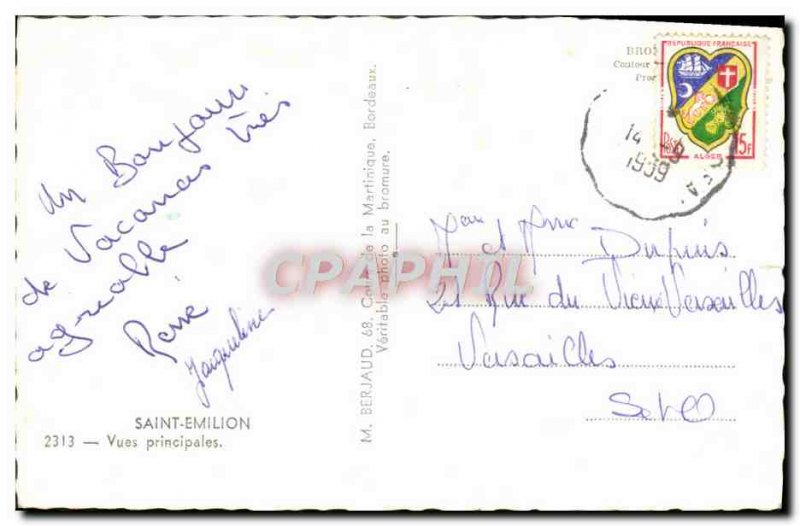 Un Bonjour
de Vacances très
agréable
René
Jacqueline
SAINT-EMILION
2313 — Vues principales.
M. BERJAUD, 68, Cours de la Martinique, Bordeaux.
Véritable photo au bromure.
CPAPHIL
BRO
Couleur
Pro
REPUBLIQUE FRANÇAISE
15F
ALGER
14
1959
et Mme Dupuis
21 Rue du Vieux Versailles
Versailles
S et O